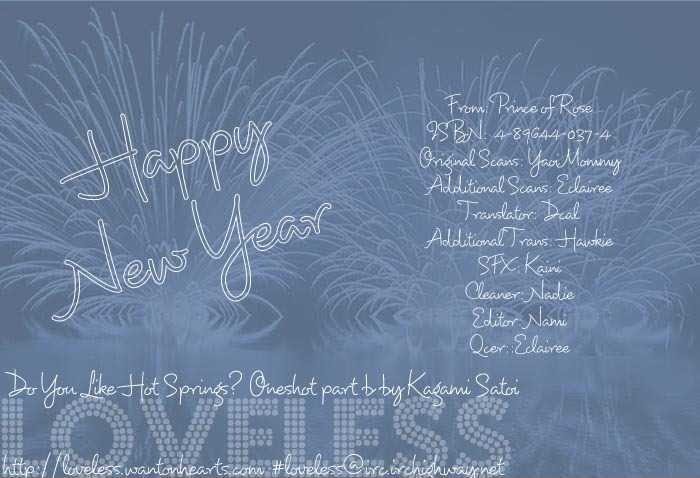 Happy
New Year
From: Prince of Rose
ISBN: 4-89644-037-4
Original Scans: YaoiMommy
Additional Scans: Eclairee
Translator: Dcal
Additional Trans: Hawkie
SFX: Kaini
Cleaner: Nadie
Editor: Nami
Qcer::Eclairee
Do You Like Hot Springs? Oneshot part b by Kagami Satoi
LOVELESS
http://loveless.wantonhearts.com #loveless@irc.irchighway.net